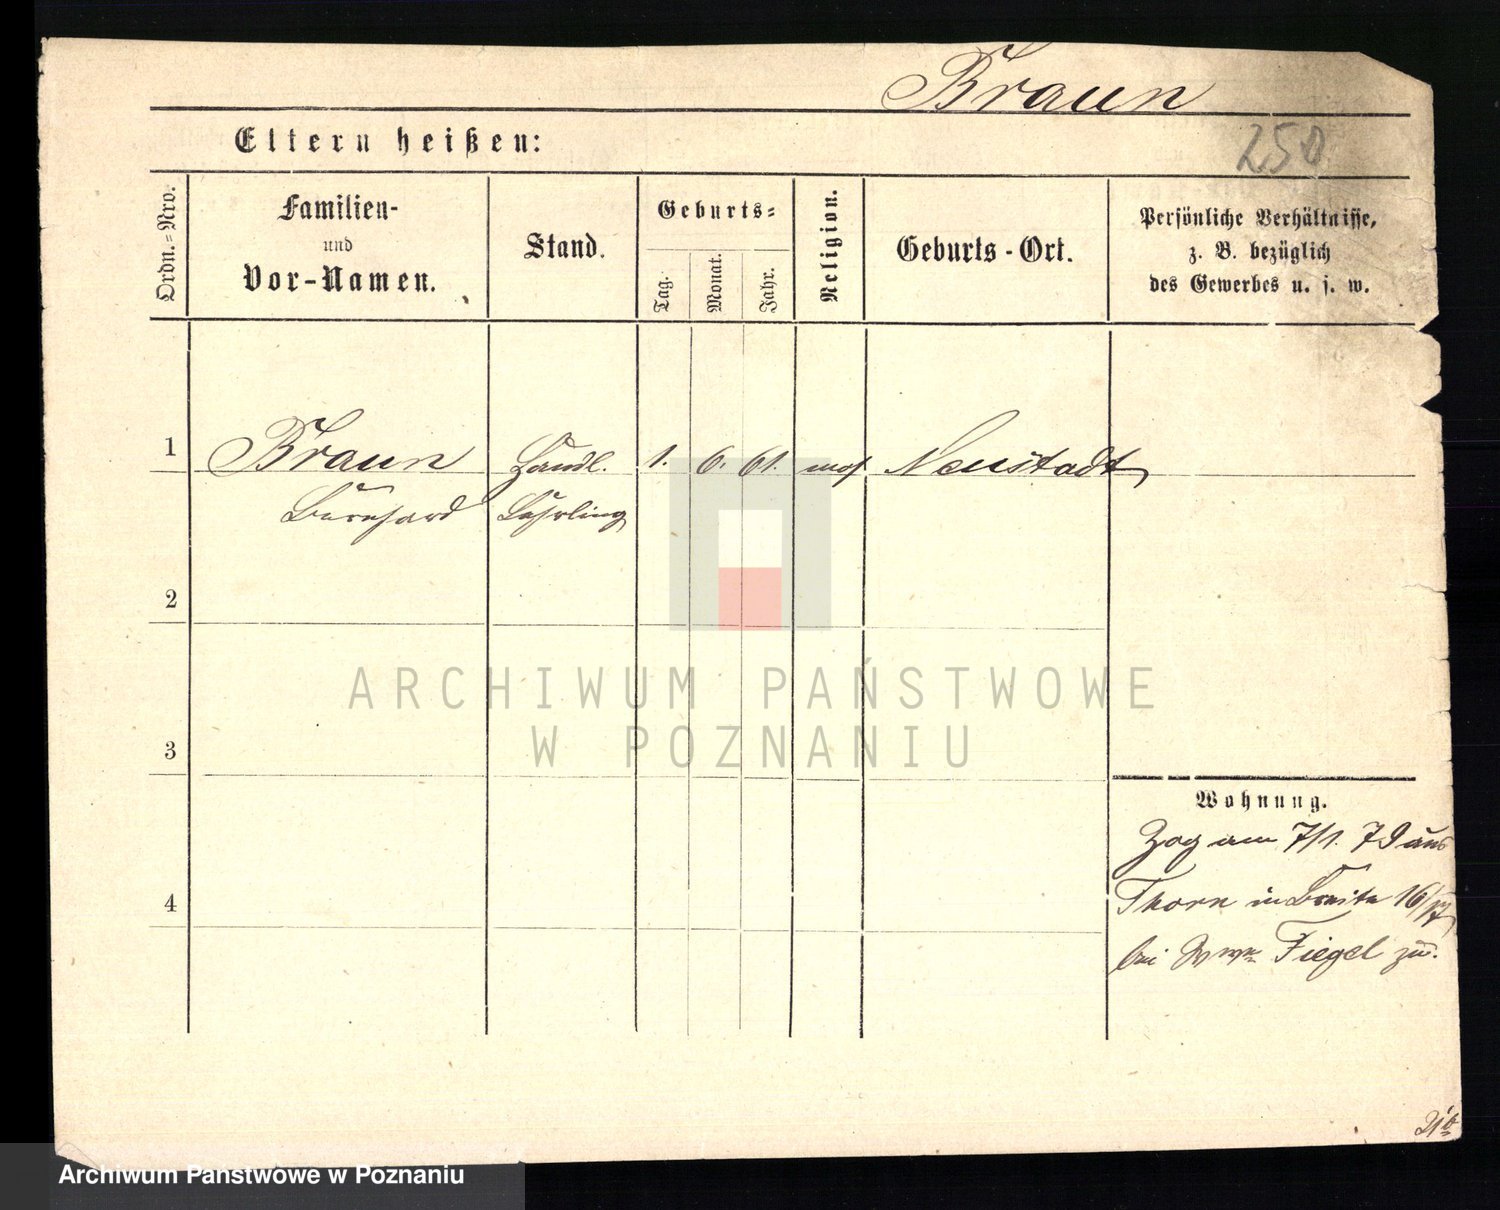 Braun
250
Eltern heißen:
Ordn.=Nro.
Familien-
und
Vor-Namen.
Stand.
Geburts=
Tag.
Monat.
Jahr.
Religion.
Geburts-Ort.
Persönliche Verhältnisse,
z. B. bezüglich
des Gewerbes u. s. w.
1 Braun Handl. 1. 6. 61. mos Neustadt
Bernhard Lehrling
2
3
4
Wohnung.
Zog am 7/1. 79 aus
Thorn in Breite 16/17
bei Wwe Fiegel zu.
ARCHIWUM PAŃSTWOWE
W POZNANIU
Archiwum Państwowe w Poznaniu